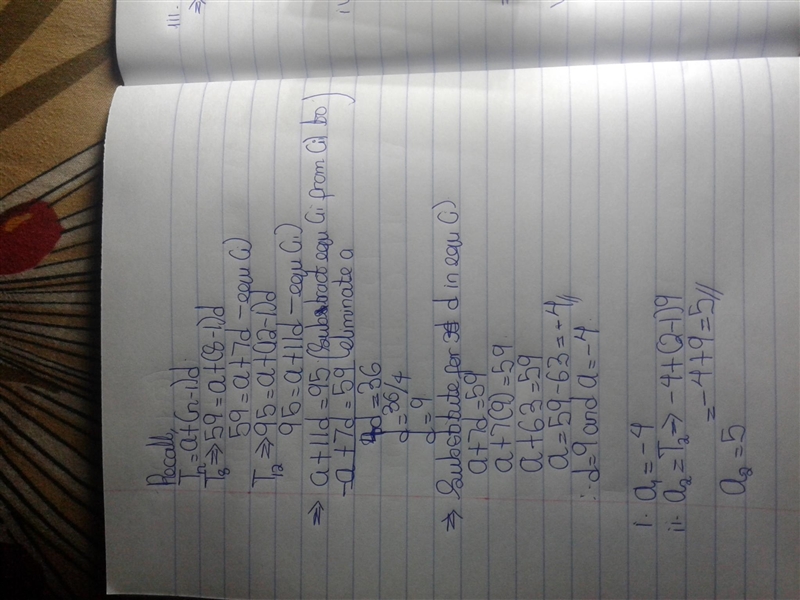 Recall,
Tn = a+(n-1)d
T8 ⇒ 59 = a+(8-1)d
59 = a+7d - equ (i)
T12 ⇒ 95 = a+(12-1)d
95 = a+11d - equ (ii)
⇒ a+11d = 95 (Substract equ (ii from (i) to
-a+7d = 59 eliminate a)
4d = 36
d = 36/4
d = 9
⇒ Substitute for d in equ (i)
a+7d = 59
a+7(9) = 59
a+63 = 59
a = 59-63 = -4//
∴ d=9 and a=-4.
i. a1 = -4
ii. a2 = T2 ⇒ -4+(2-1)9
= -4+9 = 5//
a2 = 5
iii.
⇒